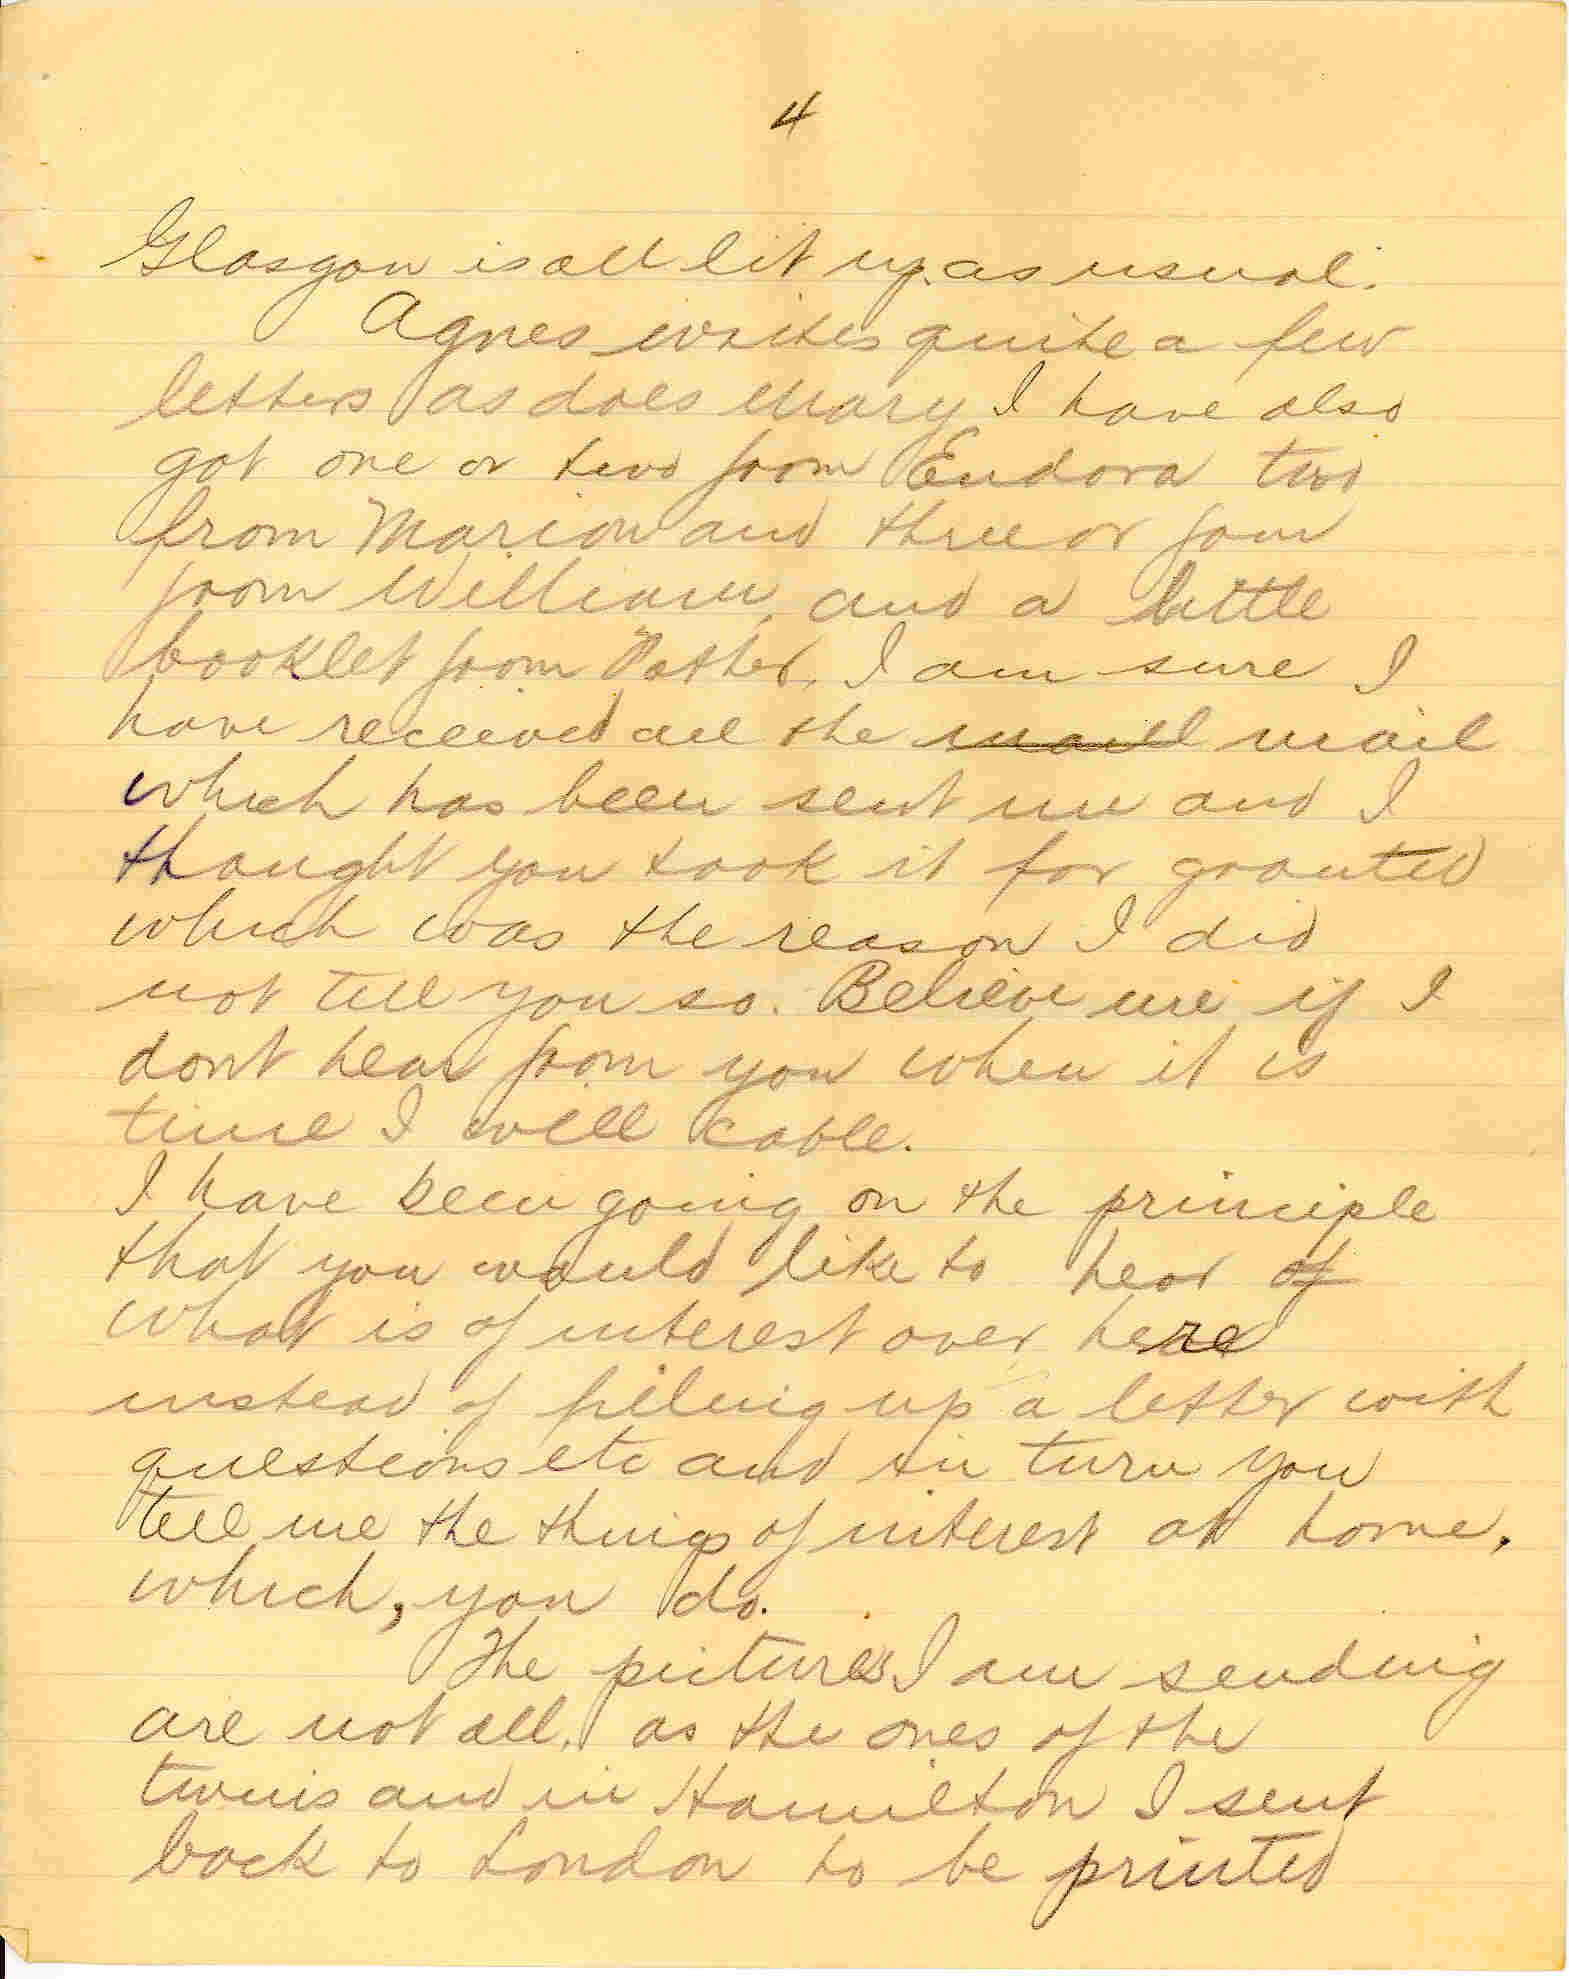 4
Glasgow is all lit up. as usual.
Agnes writes quite a few
letters as does Mary I have also
got one or two from Eudora two
from Marion and three or four
from William, and a little
booklet from Father, I am sure I
have received all the mail mail
which has been sent me and I
thought you took it for granted
which was the reason I did
not tell you so. Believe me if I
dont hear from you when it is
time I will cable.
I have been going on the principle
that you would like to hear of
what is of interest over here
instead of filling up a letter with
questions etc and in turn you
tell me the things of interest at home,
which, you do.
The pictures I am sending
are not all, as the ones of the
twins and in Hamilton I sent
back to London to be printed